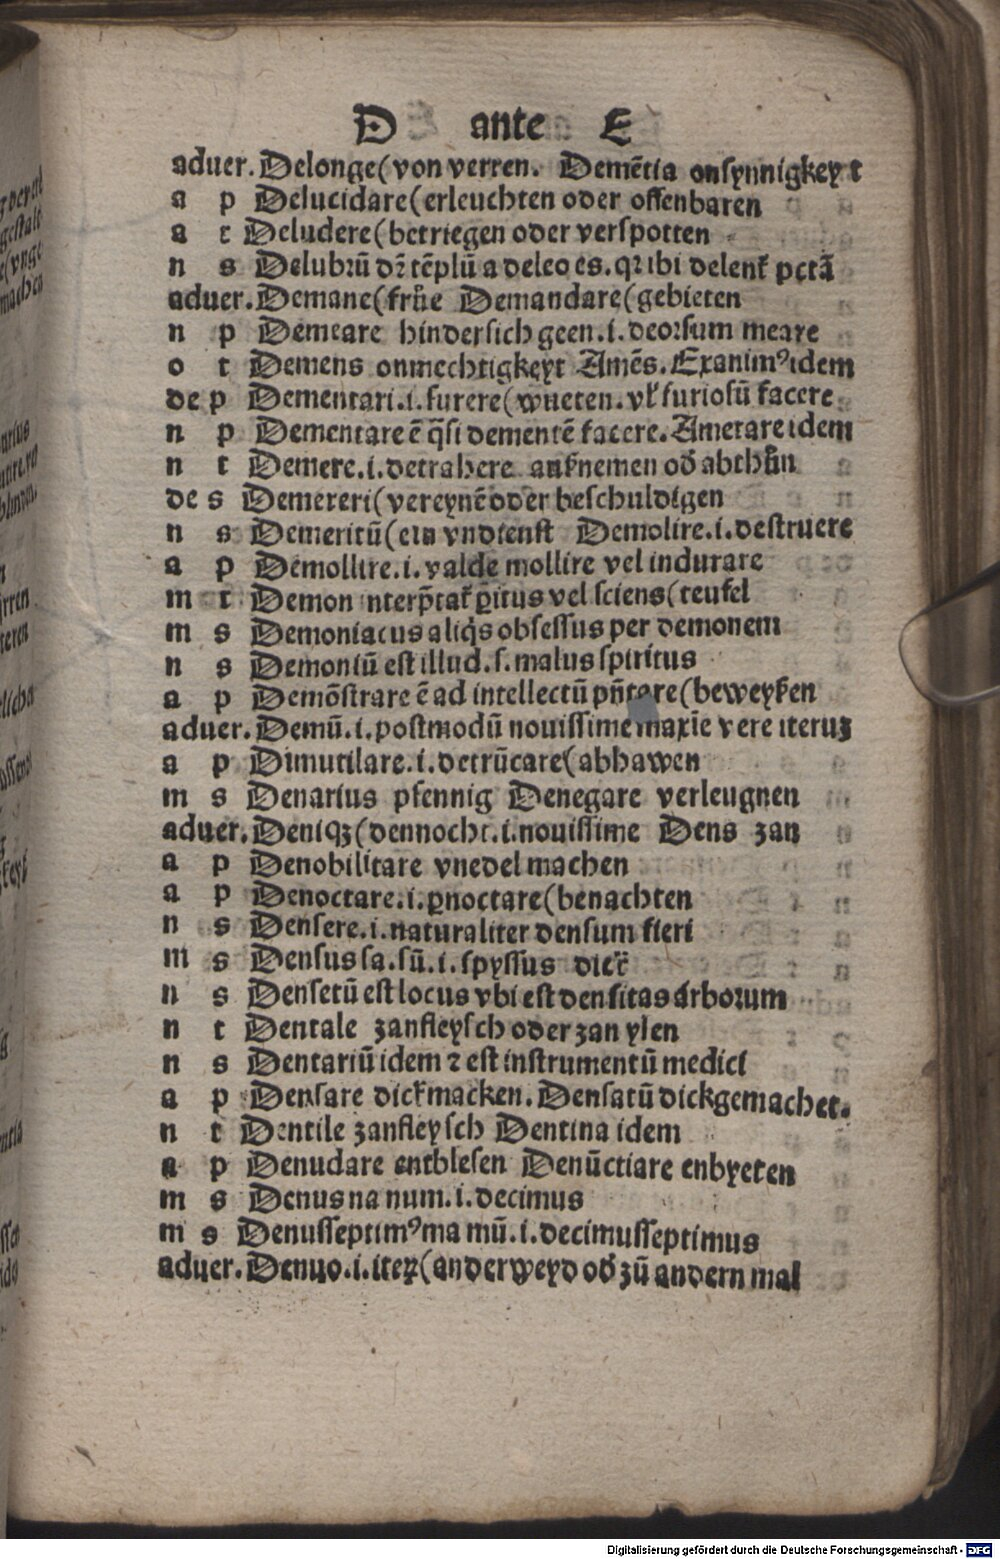 D ante E
aduer. Delonge(von verren. Demẽtia onsynnigkeyt
a p Delucidare(erleuchten oder offenbaren
a t Deludere(betriegen oder verspotten
n s Delubrũ dꝛ̃ tẽplũ a deleo es. qꝛ ibi delent᷑ pctã
aduer. Demane(frůe Demandare(gebieten
n p Demeare hindersich geen.i.deorsum meare
o t Demens onmechtigkeyt Amẽs. Exanimꝰ idem
de p Dementari.i.furere(wueten.vl᷑ furiosũ facere
n p Dementare ẽ q̃si dementẽ facere. Ametare idem
n t Demere.i.detrahere auffnemen od̕ abthůn
de s Demereri(vereynẽ oder beschuldigen
n s Demeritũ(ein vndienst Demolire.i.destruere
a p Demollire.i.valde mollire vel indurare
m t Demon nterp̃tat᷑ ꝑitus vel sciens(teufel
m s Demoniacus aliq̃s obsessus per demonem
n s Demoniũ est illud.s.malus spiritus
a p Demõstrare ẽ ad intellectũ pñtare(beweysen
aduer. Demũ.i.postmodũ nouissime maxĩe vere iteruꝫ
a p Dimutilare.i.detrũcare(abhawen
m s Denarius pfennig Denegare verleugnen
aduer. Deniqꝫ(dennocht.i.nouissime Dens zan
a p Denobilitare vnedel machen
a p Denoctare.i.ꝑnoctare(benachten
n s Densere.i.naturaliter densum fieri
m s Densus sa.sũ.i.spyssus dick
n s Densetũ est locus vbi est densitas arborum
n t Dentale zanfleysch oder zan ylen
n s Dentariũ idem ⁊ est instrumentũ medici
a p Densare dick macken. Densatũ dickgemachet.
n t Dentile zanfleysch Dentina idem
a p Denudare entblesen Denũctiare enbyeten
m s Denus na num.i.decimus
m s Denusseptimꝰ ma mũ.i.decimusseptimus
aduer. Denuo.i.iteꝝ(anderweyd od̕ zũ andern mal
Digitalisierung gefördert durch die Deutsche Forschungsgemeinschaft - DFG